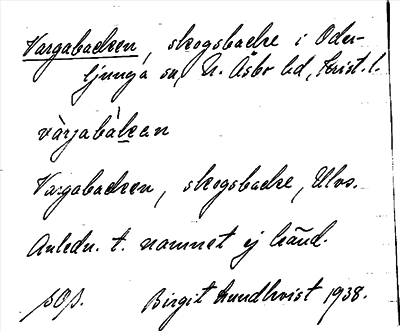 Vargabacken, skogsbacke i Oder-
ljunga sn, N. Åsbo hd, Krist. l.
várjabàkan
Vargabacken, skogsbacke, Ulvs.
Anledn. t. namnet ej känd.
Birgit Lundkvist 1938.